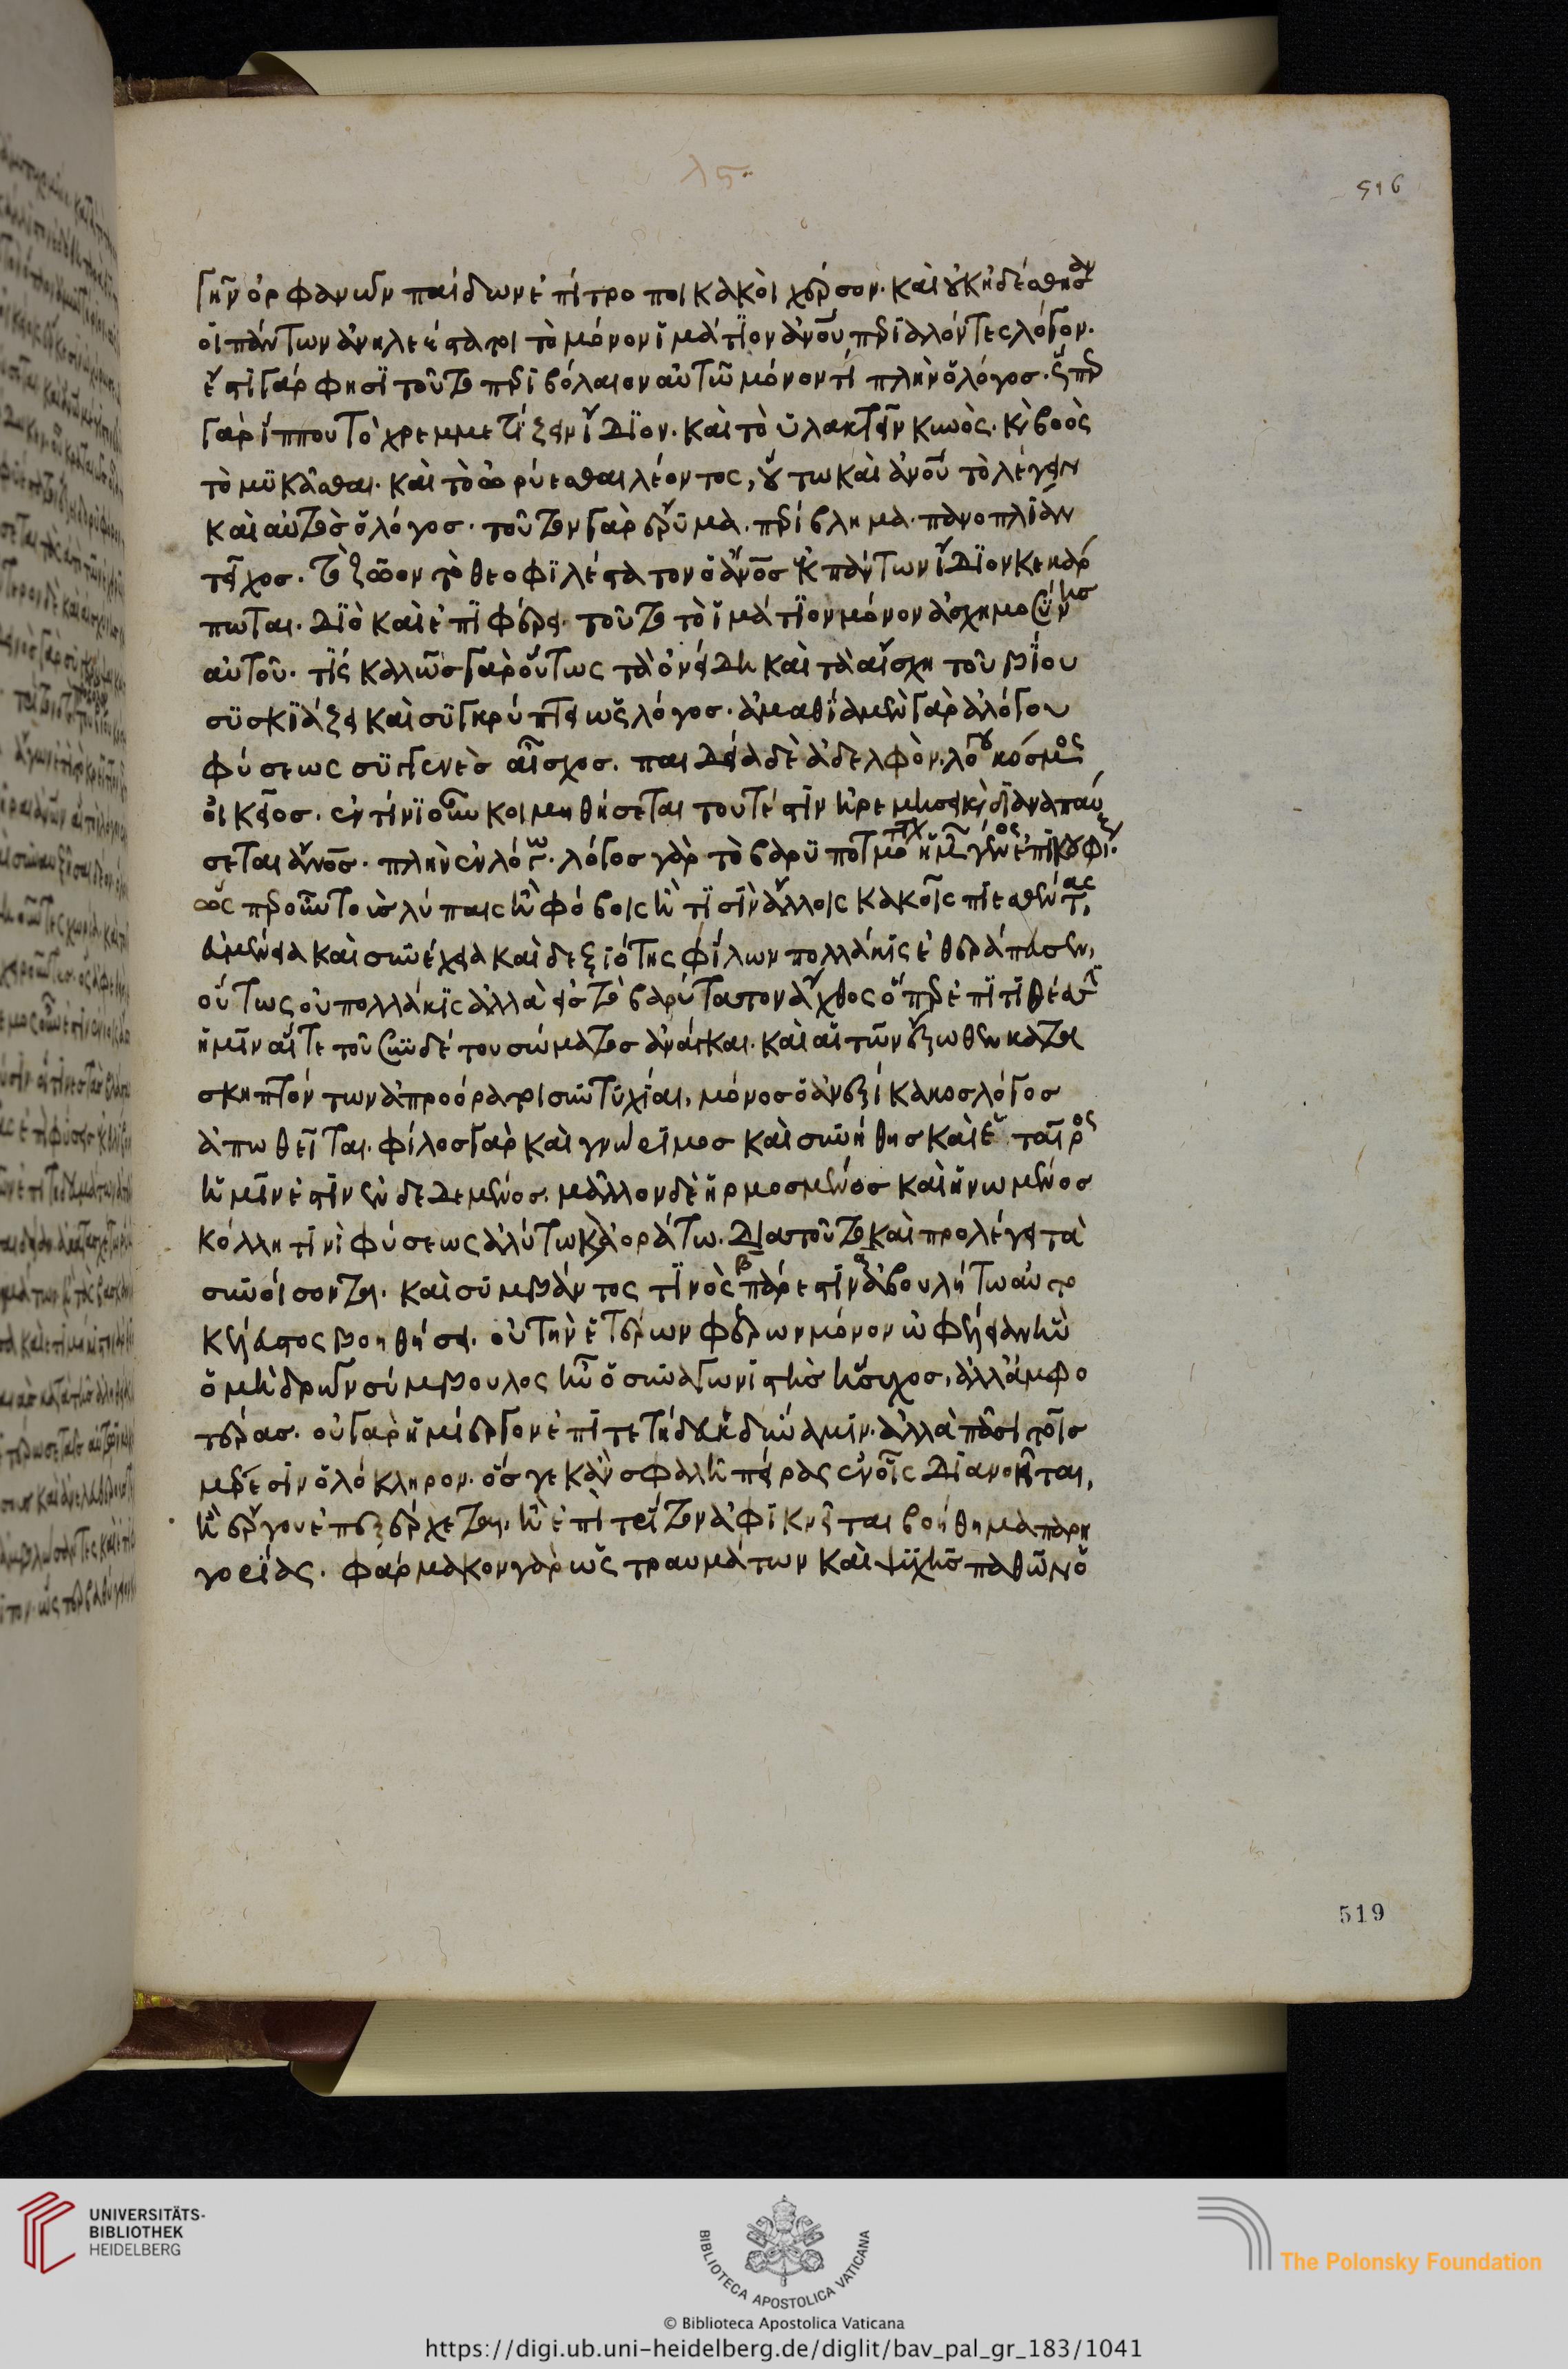 λϛ
516
γῆν ὀρφανῶν παίδων ἐπίτροποι κακοὶ χέρσον· καὶ οὐκ ἠδέσθησαν
οἱ πάντων ἀνηλεέστατοι τὸ μόνον ἱμάτιον ἀνου περιαλόντες λόγον·
ἔστι γάρ φησι τοῦτο περιβόλαιον αὐτῶ μόνον τί πλὴν ὁ λόγος· ὥσπερ
γὰρ ἵππου τὸ χρεμμετίζειν ἴδιον· καὶ τὸ ὑλακτεῖν κυνὸς· καὶ βοὸς
τὸ μυκᾶσθαι· καὶ τὸ ὠρύεσθαι λέοντος, οὕτω καὶ ἀνου τὸ λέγειν
καὶ αὐτὸς ὁ λόγος· τοῦτον γὰρ ἔρυμα· περίβλημα· πανοπλίαν
τεῖχος· τὸ ζῶον τὸ θεοφιλέστατον ὁ ἄνος ἐκ πάντων ἴδιον κεκάρ
πωται· διὸ καὶ ἐπιφέρει· τοῦτο τὸ ἱμάτιον μόνον ἀσχημοσύνης
αὐτοῦ· τίς καλῶς γὰρ οὕτως τὰ ὀνείδη καὶ τὰ αἴσχη τοῦ βίου
συσκιάζει καὶ συγκρύπτει ὡς λόγος· ἀμαθία μὲν γὰρ ἀλόγου
φύσεως συγγενὲς αἶσχος· παιδεία δὲ ἀδελφὸν λόγου κόσμος
οἰκεῖος· ἐν τίνι οὖν κοιμηθήσεται τουτέστιν ἠρεμήσει καὶ διαναπαύ
σεται ἄνος· πλὴν ἐν λόγω· λόγος γὰρ τὸ βαρυποτμότατον ἡμῶν γένος ἐπικουφίζει·
ὡς περ οὖν τοὺς λύπαις ἢ φόβοις ἤ τισιν ἄλλοις κακοῖς πιεσθέντας,
εὐμένεια καὶ συνέχεια καὶ δεξιότης φίλων πολλάκις ἐθεράπευσεν,
οὕτως οὐ πολλάκις ἀλλὰ ἀεὶ τὸ βαρύτατον ἄχθος ὅπερ ἐπιτιθέασιν
ἡμῖν αἵ τε τοῦ συνδέτου σώματος ἀνάγκαι· καὶ αἱ τῶν ἔξωθεν κατα
σκηπτόντων ἀπροόρατοι συντυχίαι, μόνος ὁ ἀλεξίκακος λόγος
ἀπωθεῖται· φίλος γὰρ καὶ γνώριμος καὶ συνήθης καὶ ἑταῖρος
ἡμῖν ἐστὶν ἐνδεδεμένος· μᾶλλον δὲ ἡρμοσμένος καὶ ἡνωμένος
κόλλη τινὶ φύσεως ἀλύτω καὶ ἀοράτω· διὰ τοῦτο καὶ προλέγει τὰ
συνοίσοντα· καὶ συμβάντος τινὸς πάρεστιν ἀβουλήτω αὐτο
κέλευστος βοηθήσει· οὐ τὴν ἑτέρων φέρων μόνον ὠφέλειαν ἢν
ὁ μὴ δρῶν σύμβουλος ἢν ὁ συναγωνιστὴς ἥσυχος, ἀλλ' ἀμφο
τέρας· οὐ γὰρ ἡμίεργον ἐπιτετήδευκε δύναμιν· ἀλλὰ πᾶσι τοῖς
μέρεσιν ὁλόκληρον· ὅς γε κἂν σφαλῆ πείρας ἐν οἷς διανοεῖται,
ἢ ἔργου ἐπεξέρχεται· ἢ ἐπὶ τρίτον ἀφικνεῖται βοήθημα παρη
γορίας· φάρμακον γὰρ ὡς τραυμάτων καὶ ψυχῆς παθῶν ὁ
519
UNIVERSITÄTS-
BIBLIOTHEK
HEIDELBERG
BIBLIOTECA APOSTOLICA VATICANA
The Polonsky Foundation
© Biblioteca Apostolica Vaticana
https://digi.ub.uni-heidelberg.de/diglit/bav_pal_gr_183/1041